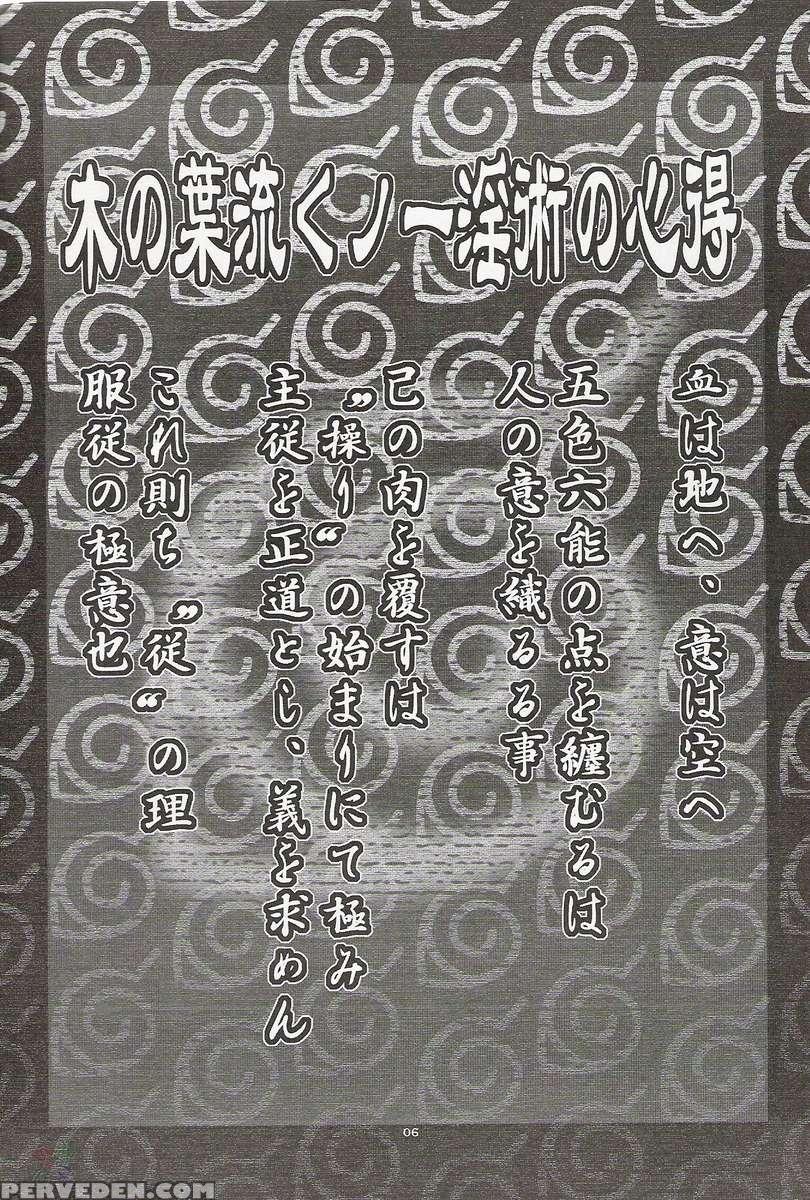 木の葉流くノ一淫術の心得
血は地へ、意は空へ
五色六能の点を纏むるは
人の意を織るる事
己の肉を覆すは
”操り“の始まりにて極み
主従を正道とし、義を求めん
これ則ち”従“の理
服従の極意也
06
PERVEDEN.COM